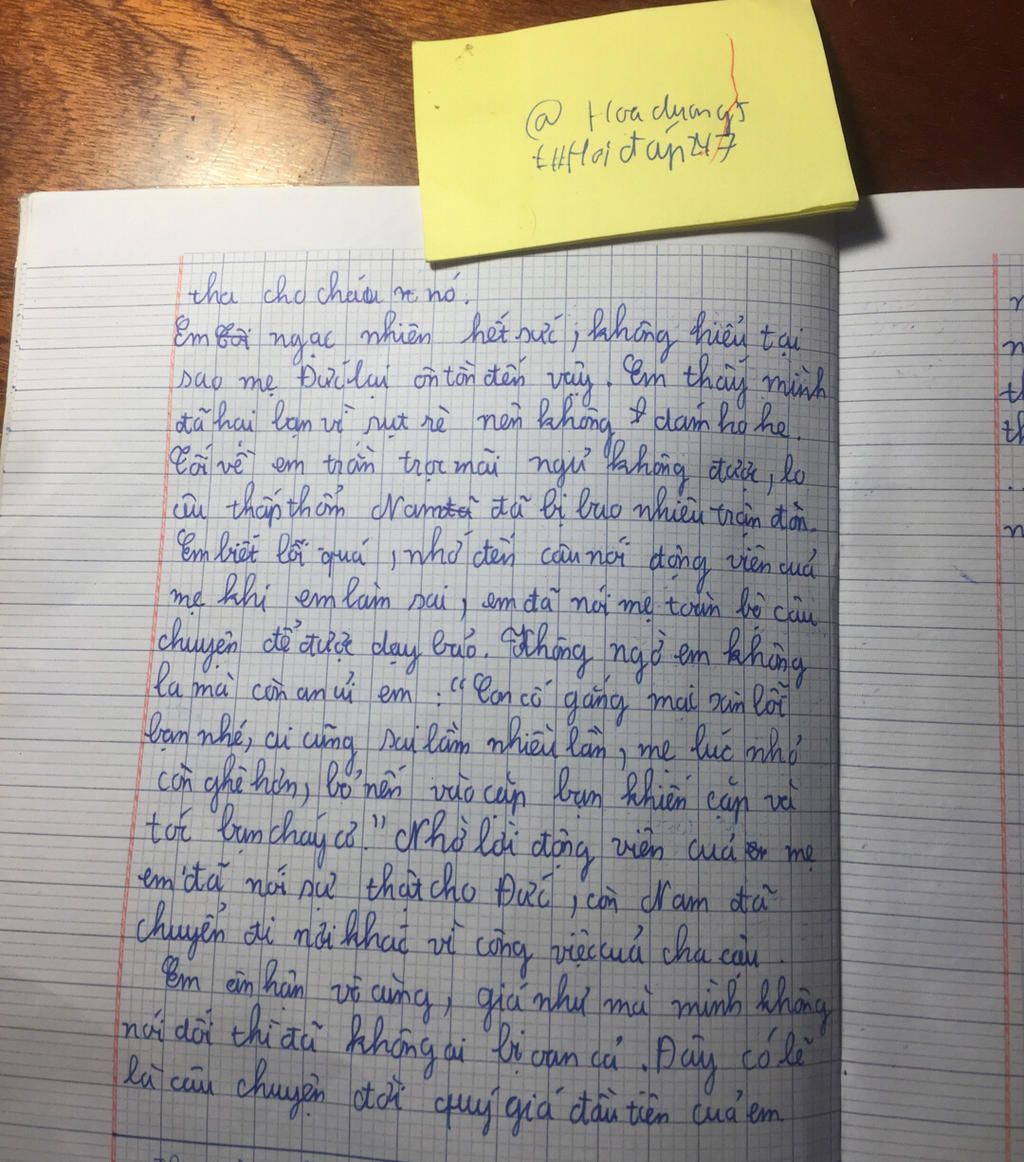 @ Hoaduong5
t#Hoiđáp247
tha cho cháu nó.
Em ngạc nhiên hết sức, không hiểu tại
sao mẹ Đức lại ồn tồn đến vậy. Em thấy mình
đã hai bạn vì rụt rè nên không dám ho he.
Tối về em trằn trọc mãi ngủ không được, lo
âu thấp thỏm Nam đã bị bao nhiêu trận đòn.
Em biết lỗi quá, nhớ đến câu nói động viên của
mẹ khi em làm sai, em đã nói mẹ toàn bộ câu
chuyện để được dạy bảo. Không ngờ em không
la mà còn an ủi em: "Con cố gắng mai xin lỗi
bạn nhé, ai cũng sai lầm nhiều lần, mẹ lúc nhỏ
còn ghê hơn, bỏ nến vào cặp bạn khiến cặp và
tóc bạn cháy cơ." Nhờ lời động viên của mẹ
em đã nói sự thật cho Đức, còn Nam đã
chuyển đi nơi khác vì công việc của cha cậu.
Em ân hận vô cùng, giá như mà mình không
nói dối thì đã không ai bị oan cả. Đây có lẽ
là câu chuyện đời quý giá đầu tiên của em